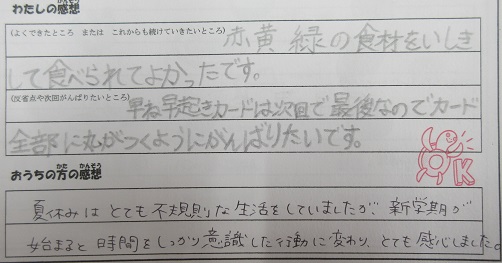 わたしの感想
(よくできたところ または これからも続けていきたいところ) 赤黄緑の食材をいしき
して食べられてよかったです。
(反省点や次回がんばりたいところ) 早ね早起きカードは次回で最後なのでカード
全部に丸がつくようにがんばりたいです。
OK
おうちの方の感想
夏休みはとても不規則な生活をしていましたが、新学期が
始まると時間をしっかり意識した行動に変わり、とても感心しました。